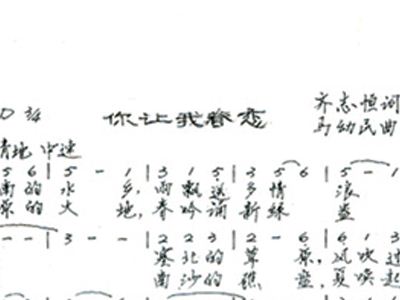 D 3/4 你让我眷恋 齐志恒词
马幼民曲
情地 中速
5 6 | 5 - 1 | 3 1 5 | 3 5 6 | 5 - 1
南的 水 乡, 雨飘送 多情
原的 火 地, 春吟诵 新绿
- - | 3 - - | 2 2 3 | 2 - 6 | 6 1 3
塞北的 草 原, 风吹过
南沙的 礁 盘, 夏唤起